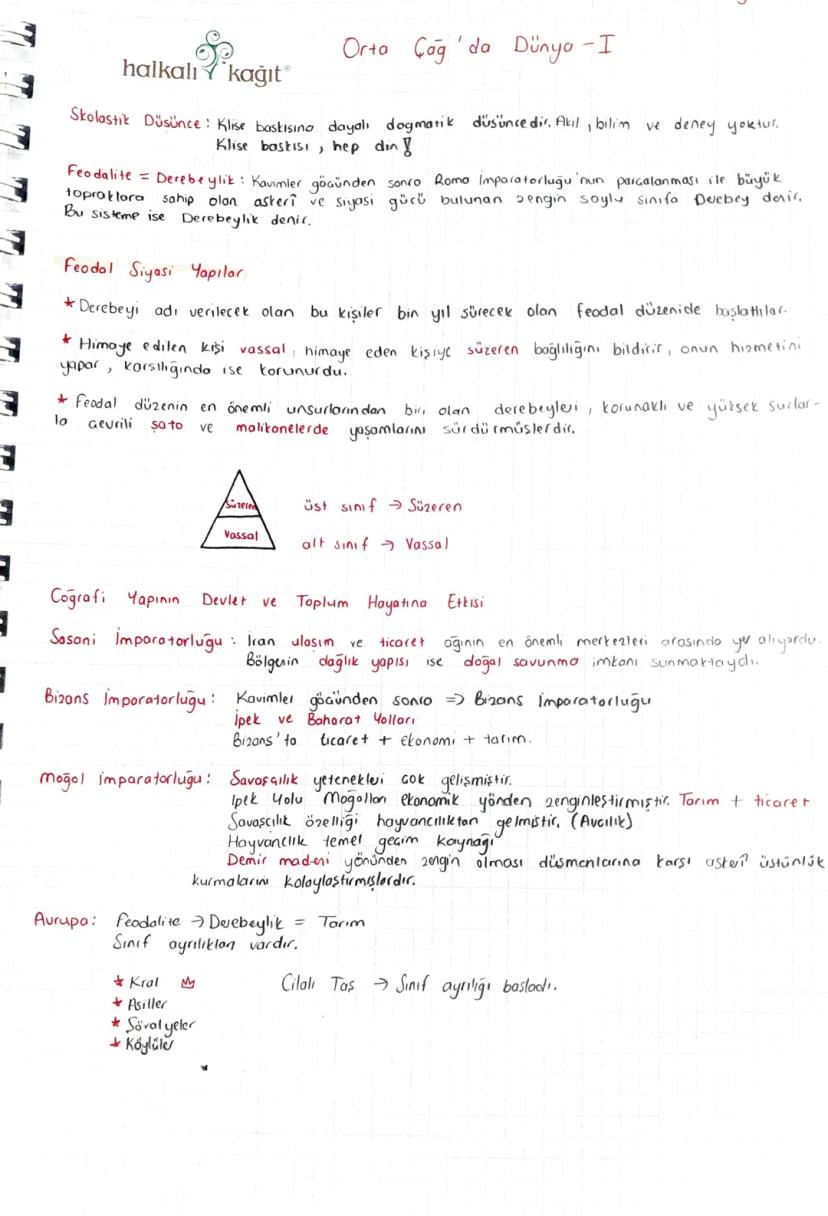 Orta Çağ'da Dünya - I
halkalı kağıt®
Skolastik Düşünce : Klise baskısına dayalı dogmatik düşüncedir. Akıl, bilim ve deney yoktur.
Klise baskısı, hep din !
Feodalite = Derebeylik : Kavimler göçünden sonra Roma İmparatorluğu'nun parçalanması ile büyük
topraklara sahip olan askerî ve siyasi gücü bulunan zengin soylu sınıfa Derebey denir.
Bu sisteme ise Derebeylik denir.
Feodal Siyasi Yapılar
* Derebeyi adı verilecek olan bu kişiler bin yıl sürecek olan feodal düzenide başlattılar.
* Himaye edilen kişi vassal, himaye eden kişiye süzeren bağlılığını bildirir, onun hizmetini
yapar, karşılığında ise korunurdu.
* Feodal düzenin en önemli unsurlarından biri olan derebeyleri, korunaklı ve yüksek surlar-
la çevrili şato ve malikanelerde yaşamlarını sürdürmüşlerdir.
Süzeren
üst sınıf → Süzeren
Vassal
alt sınıf → Vassal
Coğrafi Yapının Devlet ve Toplum Hayatına Etkisi
Sasani İmparatorluğu : İran ulaşım ve ticaret ağının en önemli merkezleri arasında yer alıyordu.
Bölgenin dağlık yapısı ise doğal savunma imkanı sunmaktaydı.
Bizans İmparatorluğu : Kavimler göçünden sonra => Bizans İmparatorluğu
İpek ve Baharat Yolları
Bizans'ta ticaret + ekonomi + tarım.
Moğol imparatorluğu : Savaşçılık yetenekleri çok gelişmiştir.
İpek Yolu Moğolları ekonomik yönden zenginleştirmiştir. Tarım + ticaret
Savaşçılık özelliği hayvancılıktan gelmiştir. (Avcılık)
Hayvancılık temel geçim kaynağı
Demir madeni yönünden zengin olması düşmanlarına karşı askerî üstünlük
kurmalarını kolaylaştırmışlardır.
Avrupa : Feodalite → Derebeylik = Tarım
Sınıf ayrılıkları vardır.
* Kral
Cilalı Taş → Sınıf ayrılığı başladı.
* Asiller
* Şövalyeler
* Köylüler